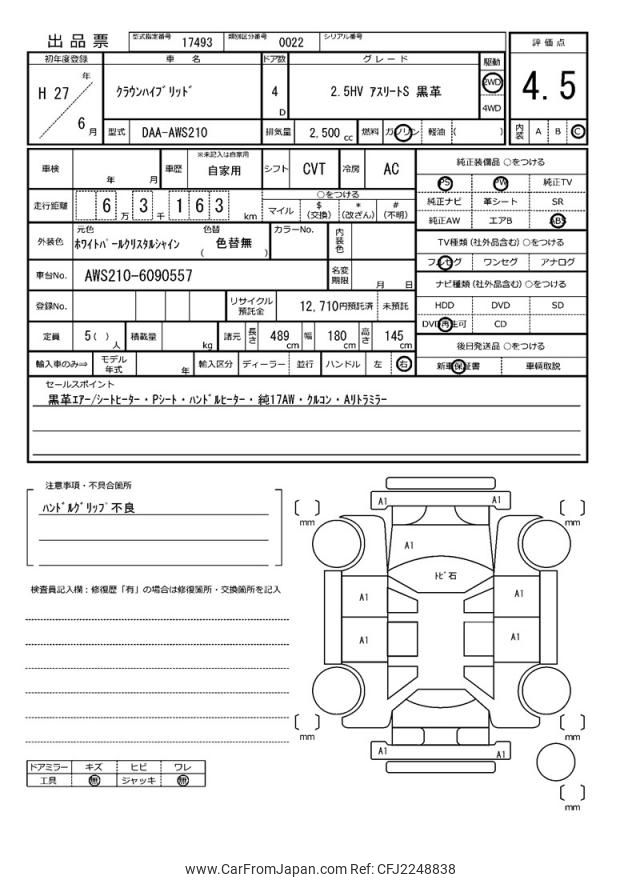 出品票 型式指定番号 17493 類別区分番号 0022 シリアル番号
評価点
4.5
内装 A B C
初年度登録 車名 ドア数 グレード 駆動
H 27 年 6 月
クラウンハイブリッド 4 D 2.5HV アスリートS 黒革
2WD
4WD
型式 DAA-AWS210 排気量 2,500 cc 燃料 ガソリン 軽油 ( )
車検 年 月 車歴 ※未記入は自家用 自家用 シフト CVT 冷房 AC
走行距離 6 万 3 千 1 6 3 km
○をつける
マイル $(交換) *(改ざん) #(不明)
外装色 元色 ホワイトパールクリスタルシャイン 色替 ( 色替無 ) カラーNo. 内装色
車台No. AWS210-6090557 名変期限 月 日
登録No. リサイクル預託金 12,710円預託済 未預託
定員 5( )人 積載量 kg 諸元 長さ 489 cm 幅 180 cm 高さ 145 cm
輸入車のみ⇒ モデル年式 年 輸入区分 ディーラー 並行 ハンドル 左 右
純正装備品 ○をつける
PS PW 純正TV
純正ナビ 革シート SR
純正AW エアB ABS
TV種類(社外品含む)○をつける
フルセグ ワンセグ アナログ
ナビ種類(社外品含む)○をつける
HDD DVD SD
DVD再生可 CD
後日発送品 ○をつける
新車保証書 車輌取説
セールスポイント
黒革エアー/シートヒーター・Pシート・ハンドルヒーター・純17AW・クルコン・Aリトラミラー
注意事項・不具合箇所
ハンドルグリップ不良
検査員記入欄:修復歴「有」の場合は修復箇所・交換箇所を記入
ドアミラー キズ ヒビ ワレ
工具 無 ジャッキ 無
A1 A1
mm mm
A1
トビ石
A1 A1
A1 A1
mm mm
A1 A1
mm
www.CarFromJapan.com Ref: CFJ2248838